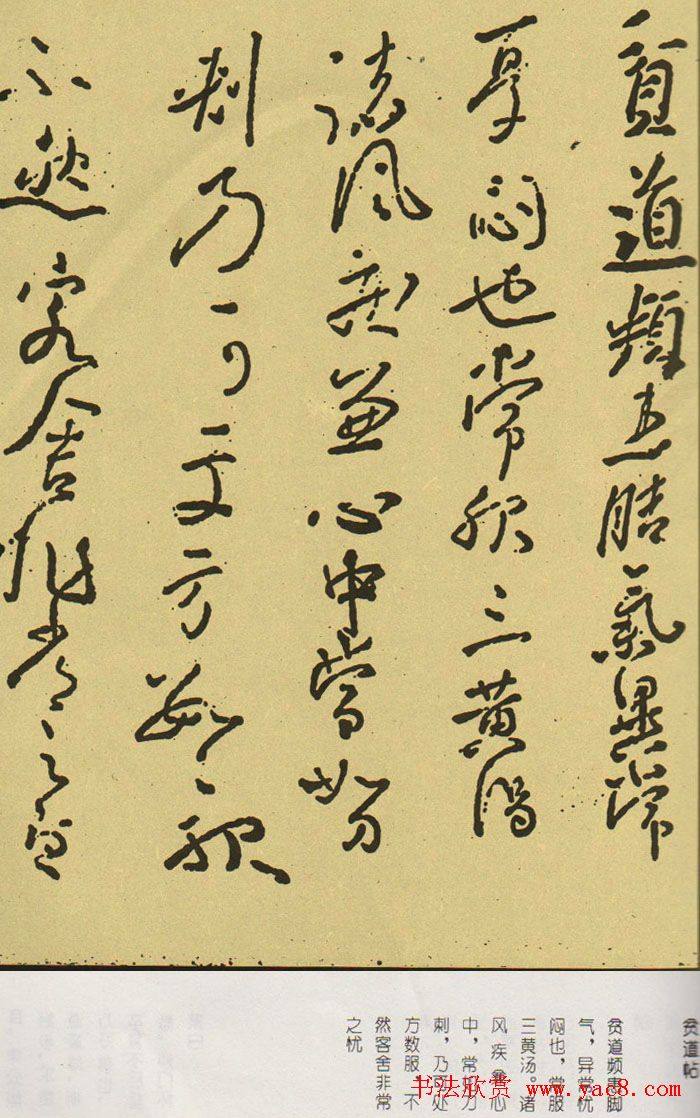 貧道頻患脚氣異常
憂悶也常服三黃湯
諸風疾兼心中常如刀
刺乃可處方數服
不然客舍非常之憂
贫道帖
贫道频患脚
气，异常忧
闷也，常服
三黄汤。诸
风疾兼心
中，常如刀
刺，乃可处
方数服。不
然客舍非常
之忧
书法欣赏 www.yac8.com